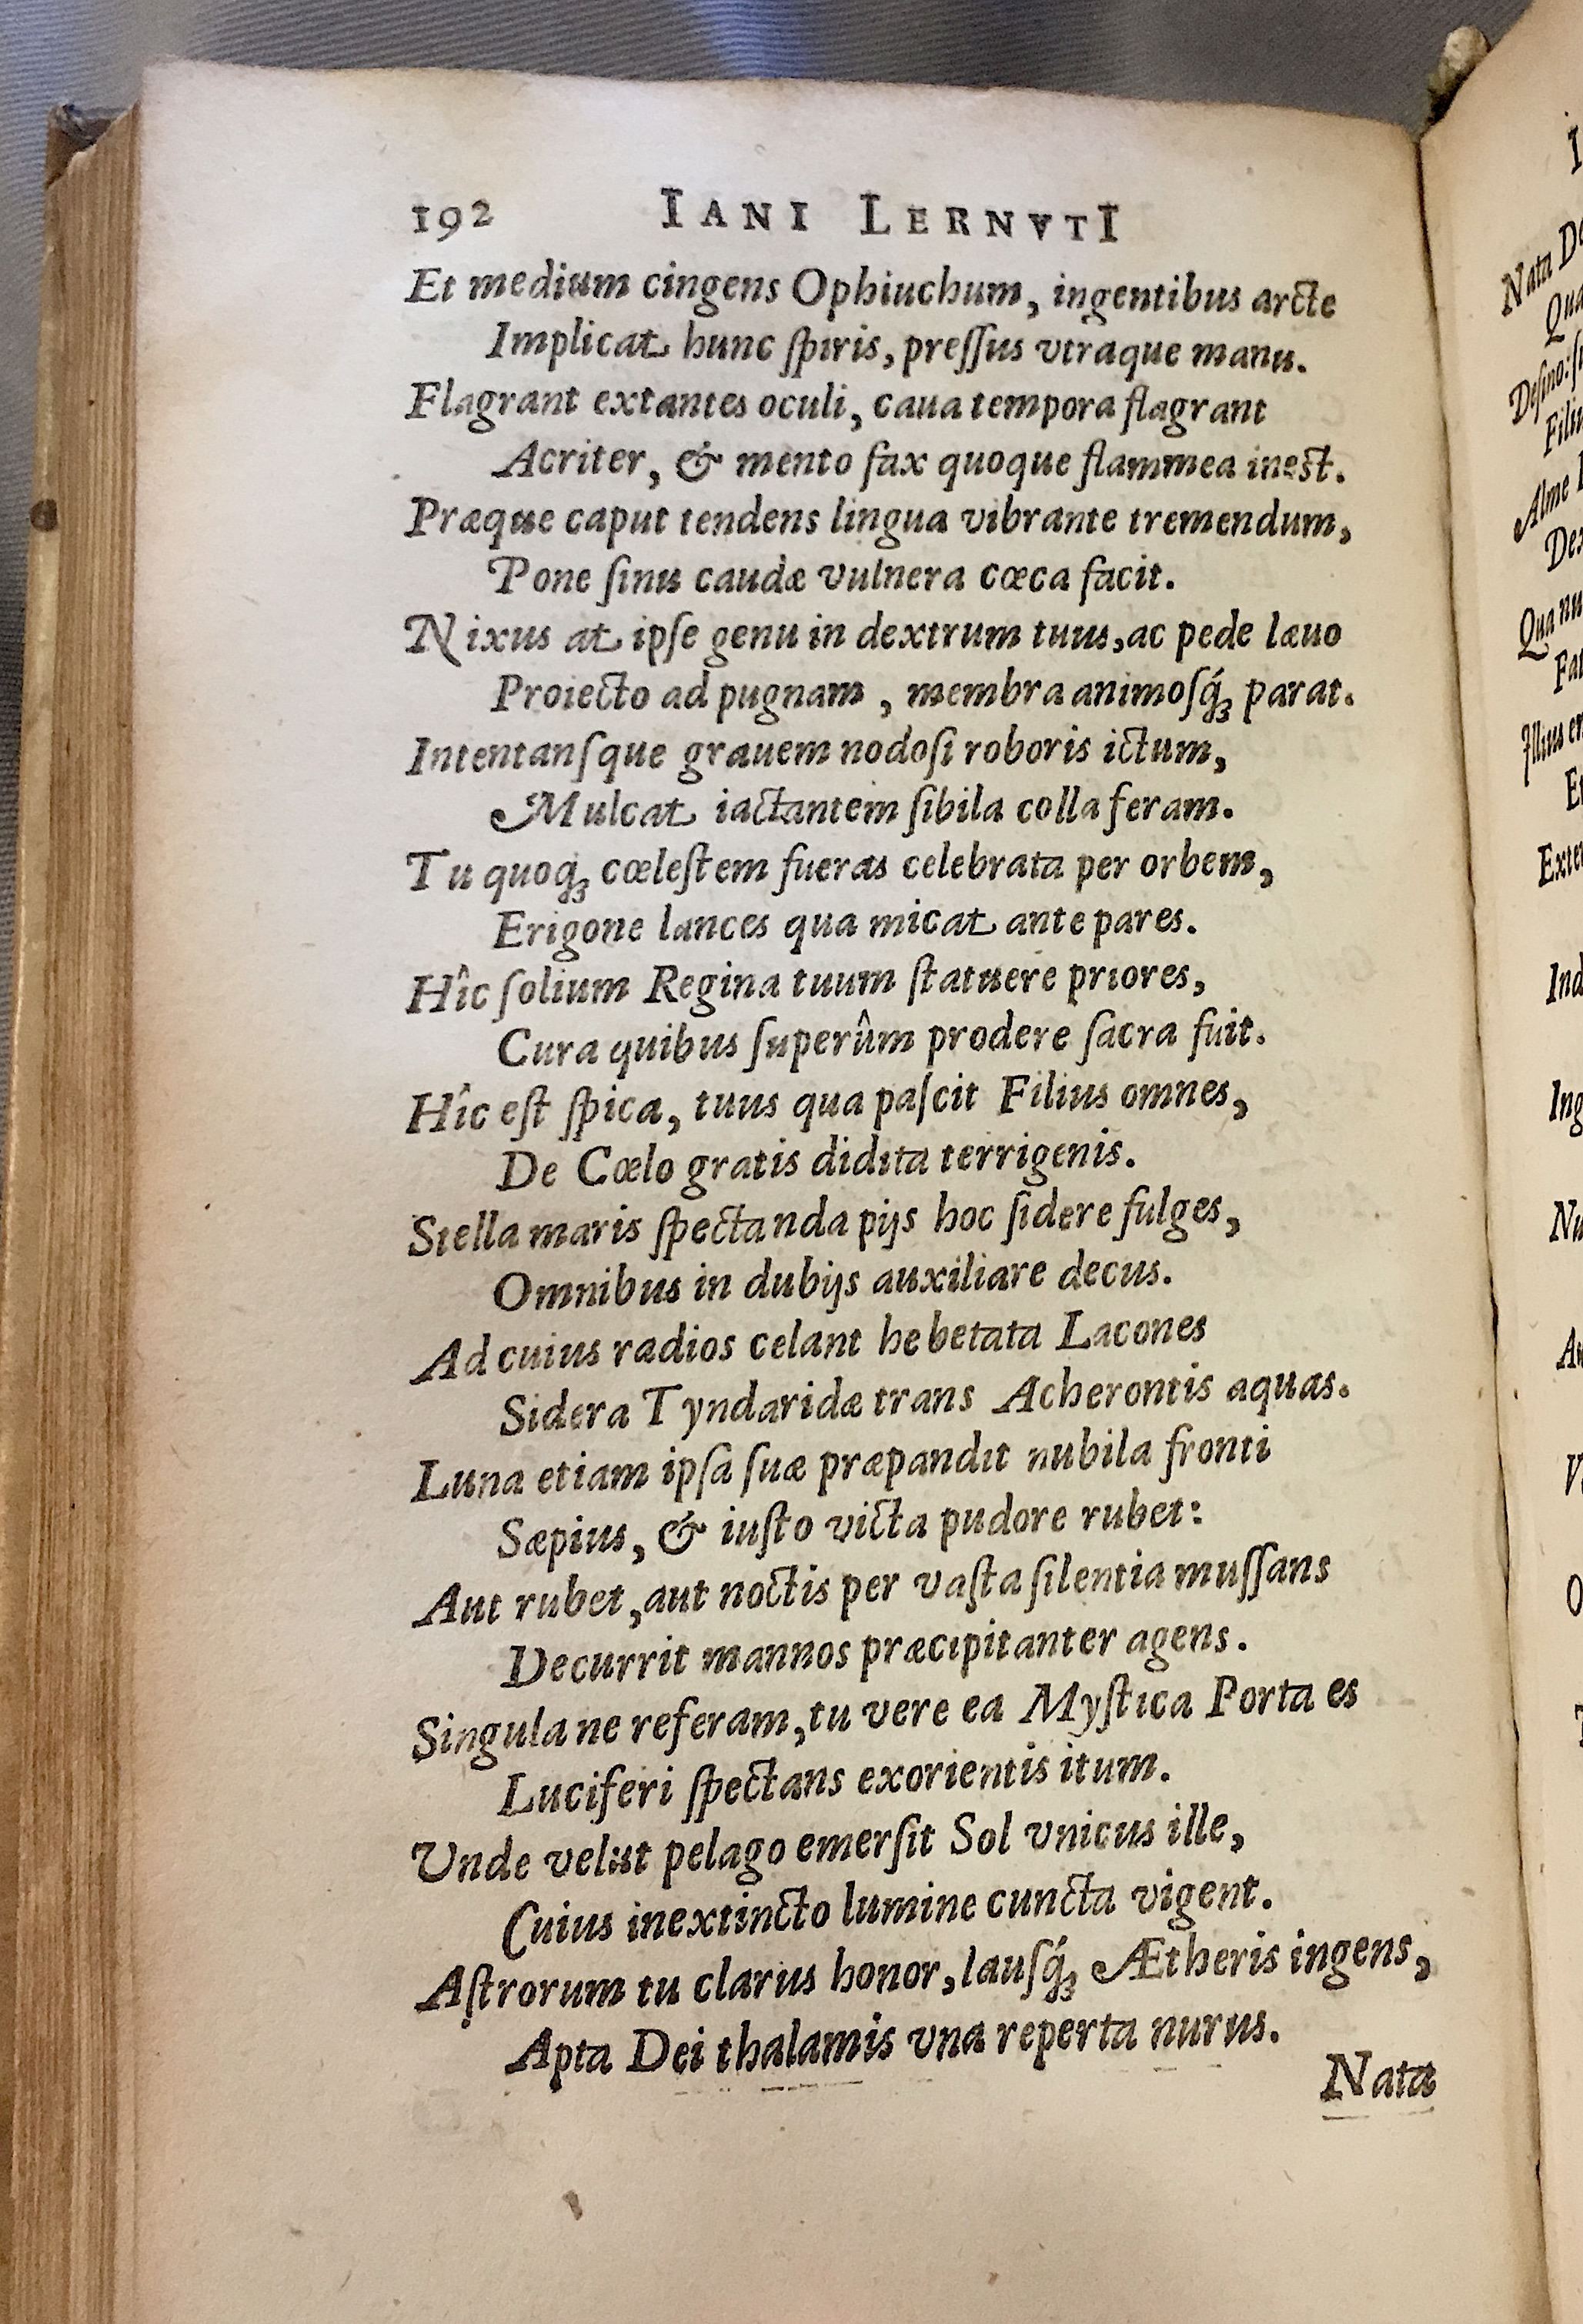 192 IANI LERNVTI
Et medium cingens Ophiuchum, ingentibus arcte
Implicat hunc ſpiris, preſſus vtraque manu.
Flagrant extantes oculi, caua tempora flagrant
Acriter, & mento fax quoque flammea inest.
Præque caput tendens lingua vibrante tremendum,
Pone ſinu caudæ vulnera cœca facit.
Nixus at ipſe genu in dextrum tuus, ac pede læuo
Proiecto ad pugnam, membra animoſq́ꝫ parat.
Intentanſque grauem nodoſi roboris ictum,
Mulcat iactantem ſibila colla feram.
Tu quoqꝫ cœleſtem fueras celebrata per orbem,
Erigone lances qua micat ante pares.
Hîc ſolium Regina tuum ſtatuere priores,
Cura quibus ſuperûm prodere ſacra fuit.
Hîc eſt ſpica, tuus qua paſcit Filius omnes,
De Cœlo gratis didita terrigenis.
Stella maris ſpectanda pijs hoc ſidere fulges,
Omnibus in dubijs auxiliare decus.
Ad cuius radios celant hebetata Lacones
Sidera Tyndaridæ trans Acherontis aquas.
Luna etiam ipſa ſuæ præpandit nubila fronti
Sæpius, & iuſto victa pudore rubet:
Aut rubet, aut noctis per vaſta ſilentia muſſans
Decurrit mannos præcipitanter agens.
Singula ne referam, tu vere ea Myſtica Porta es
Luciferi ſpectans exorientis itum.
Unde velut pelago emerſit Sol vnicus ille,
Cuius inextincto lumine cuncta vigent.
Aſtrorum tu clarus honor, lauſq́ꝫ Ætheris ingens,
Apta Dei thalamis vna reperta nurus.
Nata
Nata
Alme